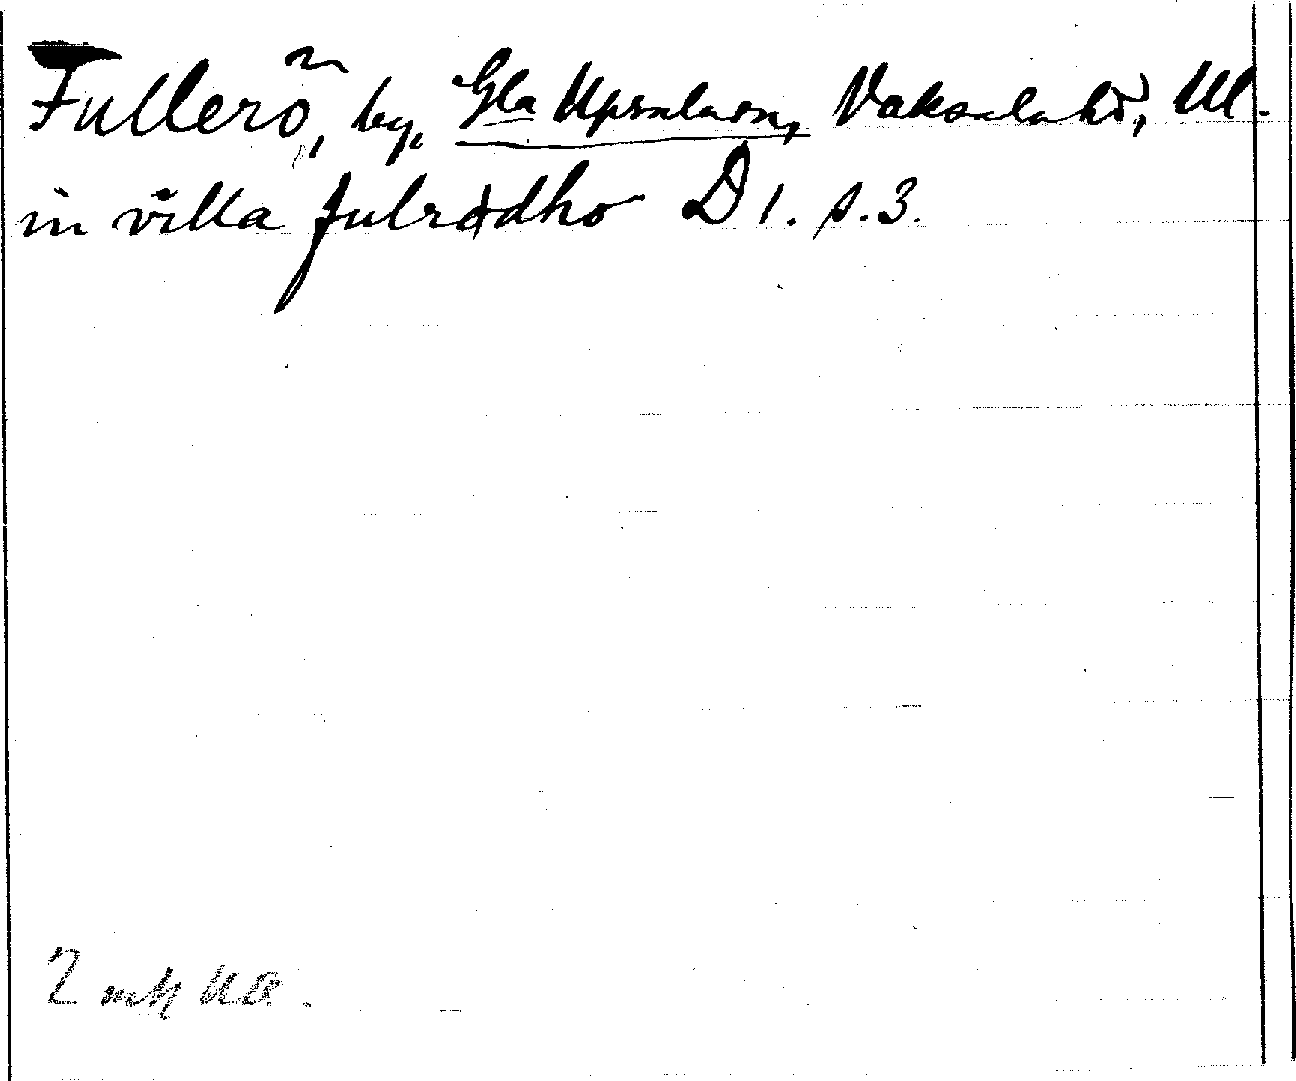 Fullerö, by, Gla Upsala sn, Vaksala hd, Ul.
in villa fulrødho D 1. s. 3.
2 mtl